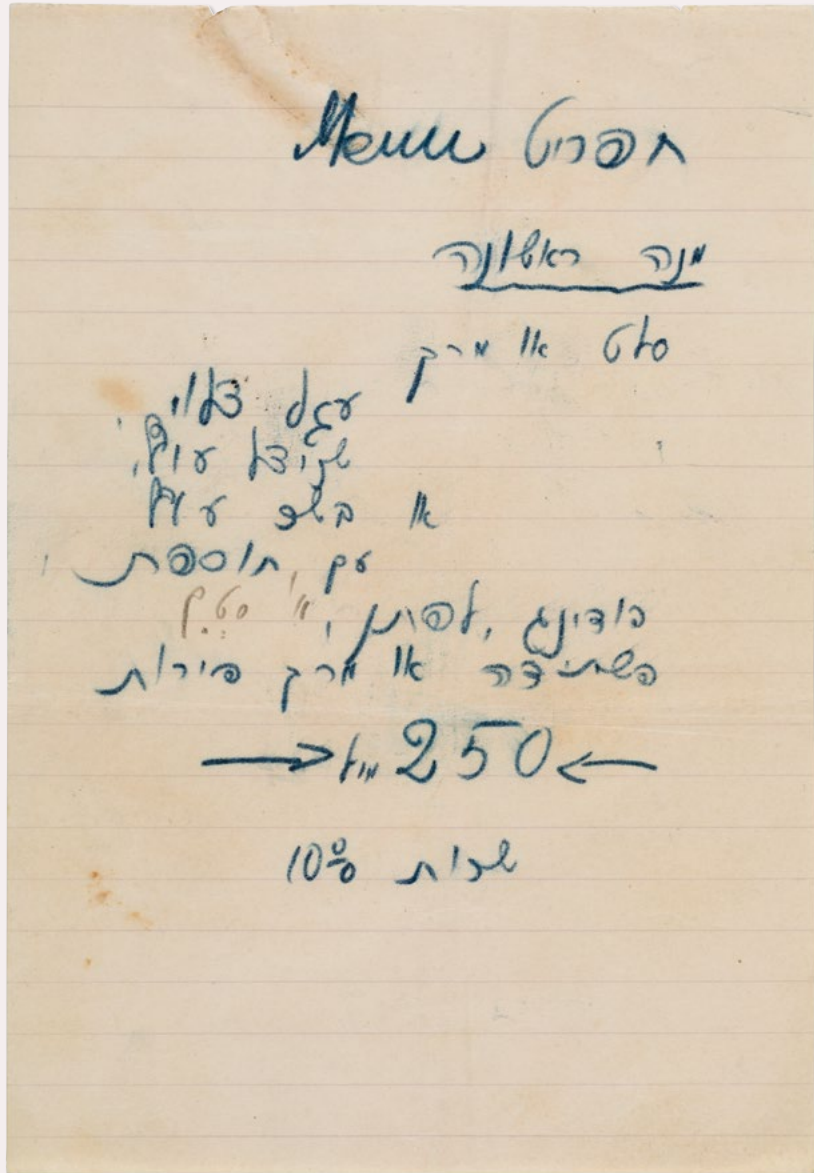 תפריט Menu
מנה ראשונה
סלט או מרק
עגל צלוי,
שניצל עוף,
או בשר עוף
עם תוספת
פודינג, לפתן,
פשטידה או מרק פירות
→ 250 מיל ←
שרות 10%